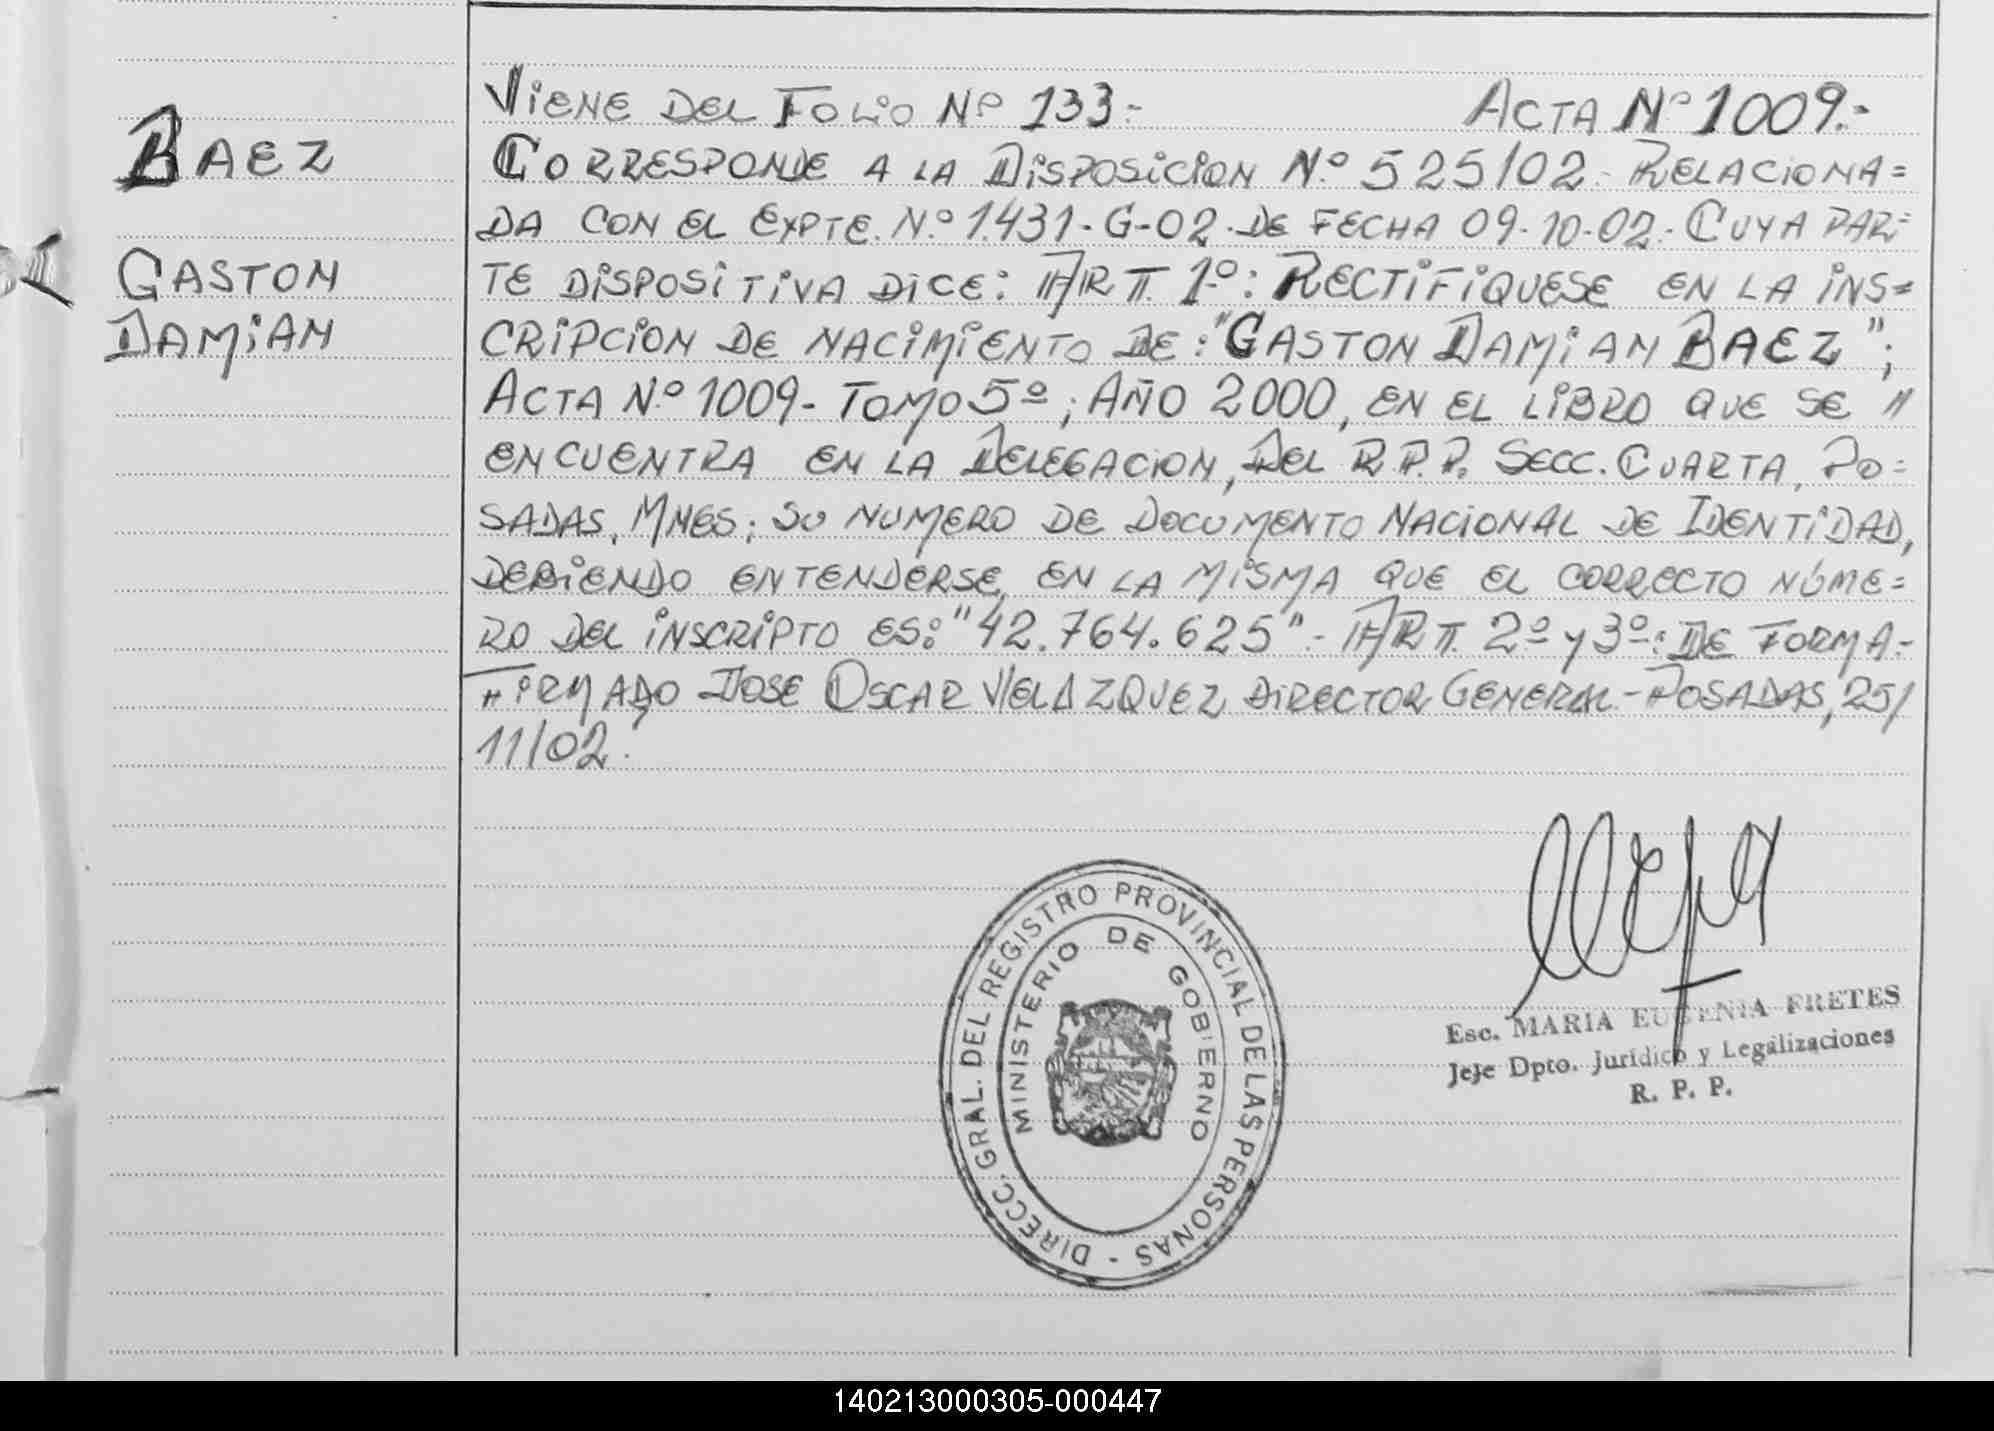 BAEZ
GASTON
DAMIAN
VIENE DEL FOLIO Nº 133.- ACTA Nº 1009.-
CORRESPONDE A LA DISPOSICION N.º 525/02.- RELACIONA=
DA CON EL EXPTE. N.º 1.431-G-02. DE FECHA 09-10-02.- CUYA PAR=
TE DISPOSITIVA DICE: ART. 1º: RECTIFIQUESE EN LA INS=
CRIPCION DE NACIMIENTO DE: "GASTON DAMIAN BAEZ";
ACTA N.º 1009- TOMO 5º; AÑO 2000, EN EL LIBRO QUE SE "
ENCUENTRA EN LA DELEGACION, DEL R.P.P. SECC. CUARTA, PO=
SADAS, MNES; SU NUMERO DE DOCUMENTO NACIONAL DE IDENTIDAD,
DEBIENDO ENTENDERSE, EN LA MISMA QUE EL CORRECTO NÚME=
RO DEL INSCRIPTO ES: "42.764.625".- ART. 2º y 3º: DE FORMA.-
FIRMADO JOSE OSCAR VELAZQUEZ DIRECTOR GENERAL.- POSADAS, 25/
11/02.
DIRECC. GRAL. DEL REGISTRO PROVINCIAL DE LAS PERSONAS -
MINISTERIO DE GOBIERNO
Esc. MARIA EUGENIA FRETES
Jefe Dpto. Jurídico y Legalizaciones
R. P. P.
140213000305-000447